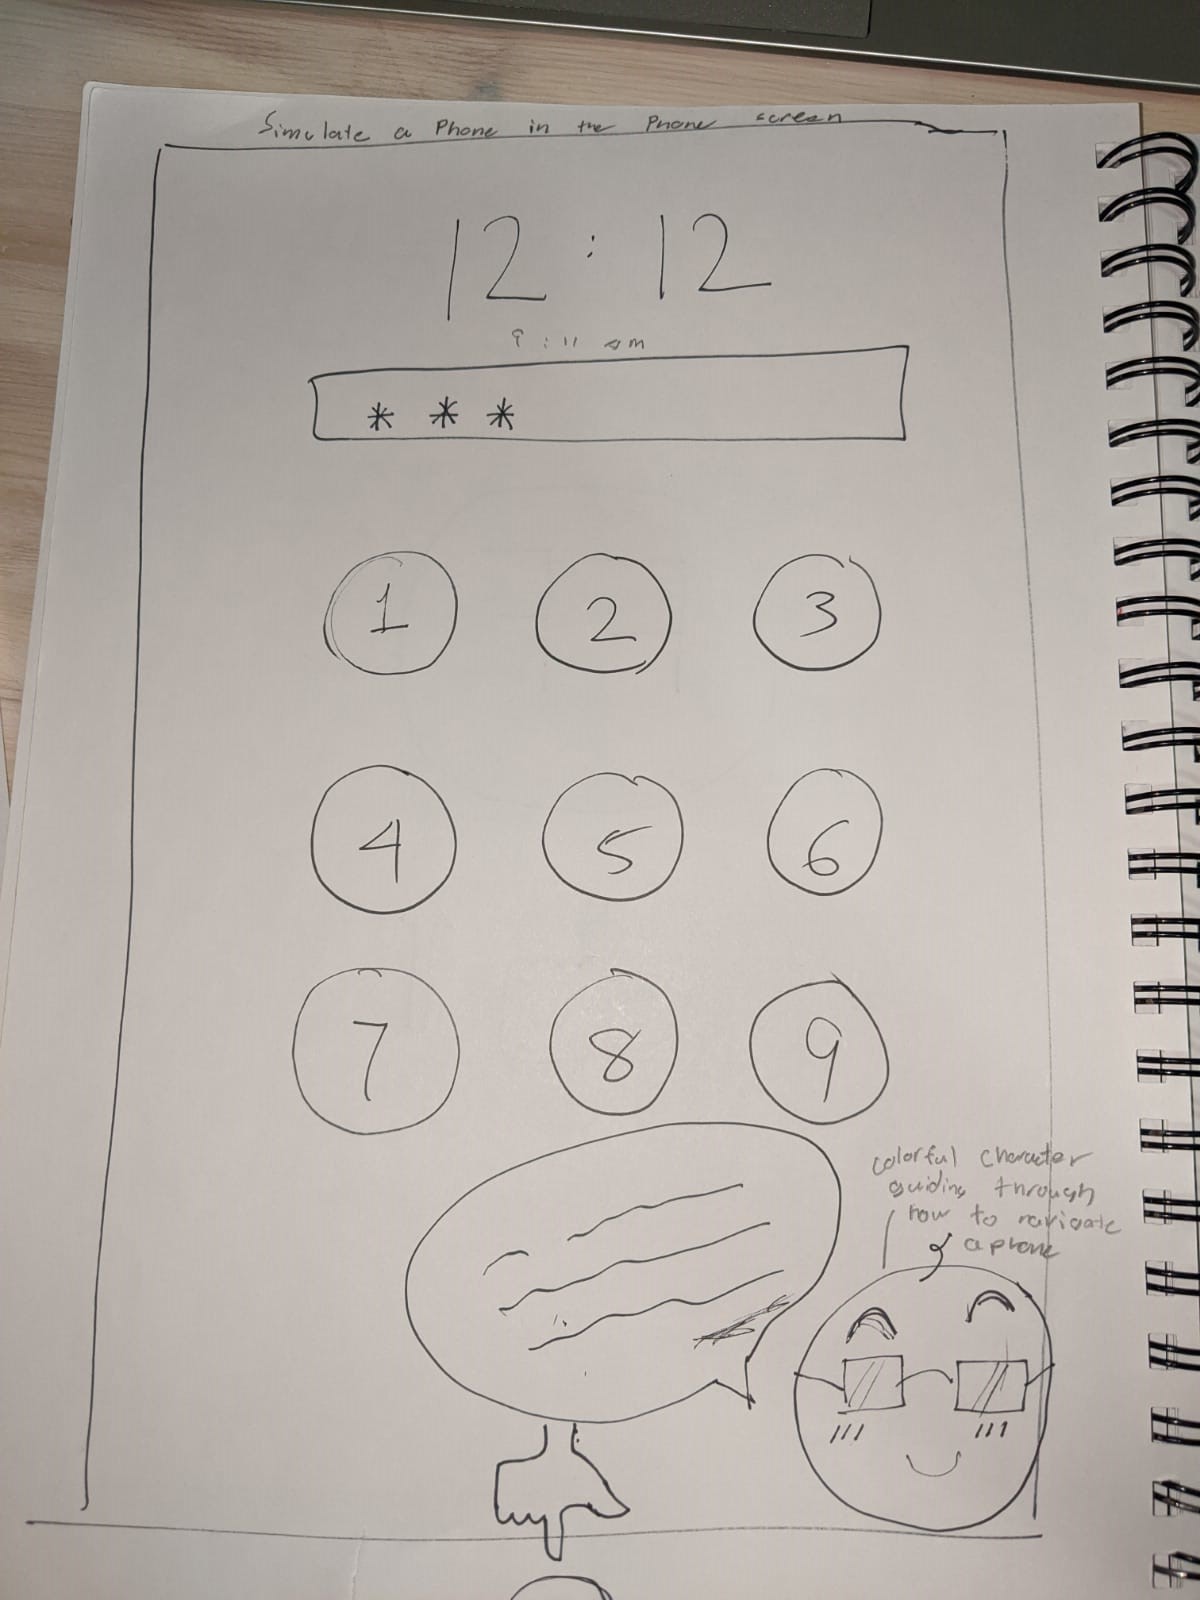 Simulate a Phone in the Phone screen
12 : 12
9 : 11 am
* * *
1 2 3
4 5 6
7 8 9
colorful character
guiding through
how to navigate
a phone